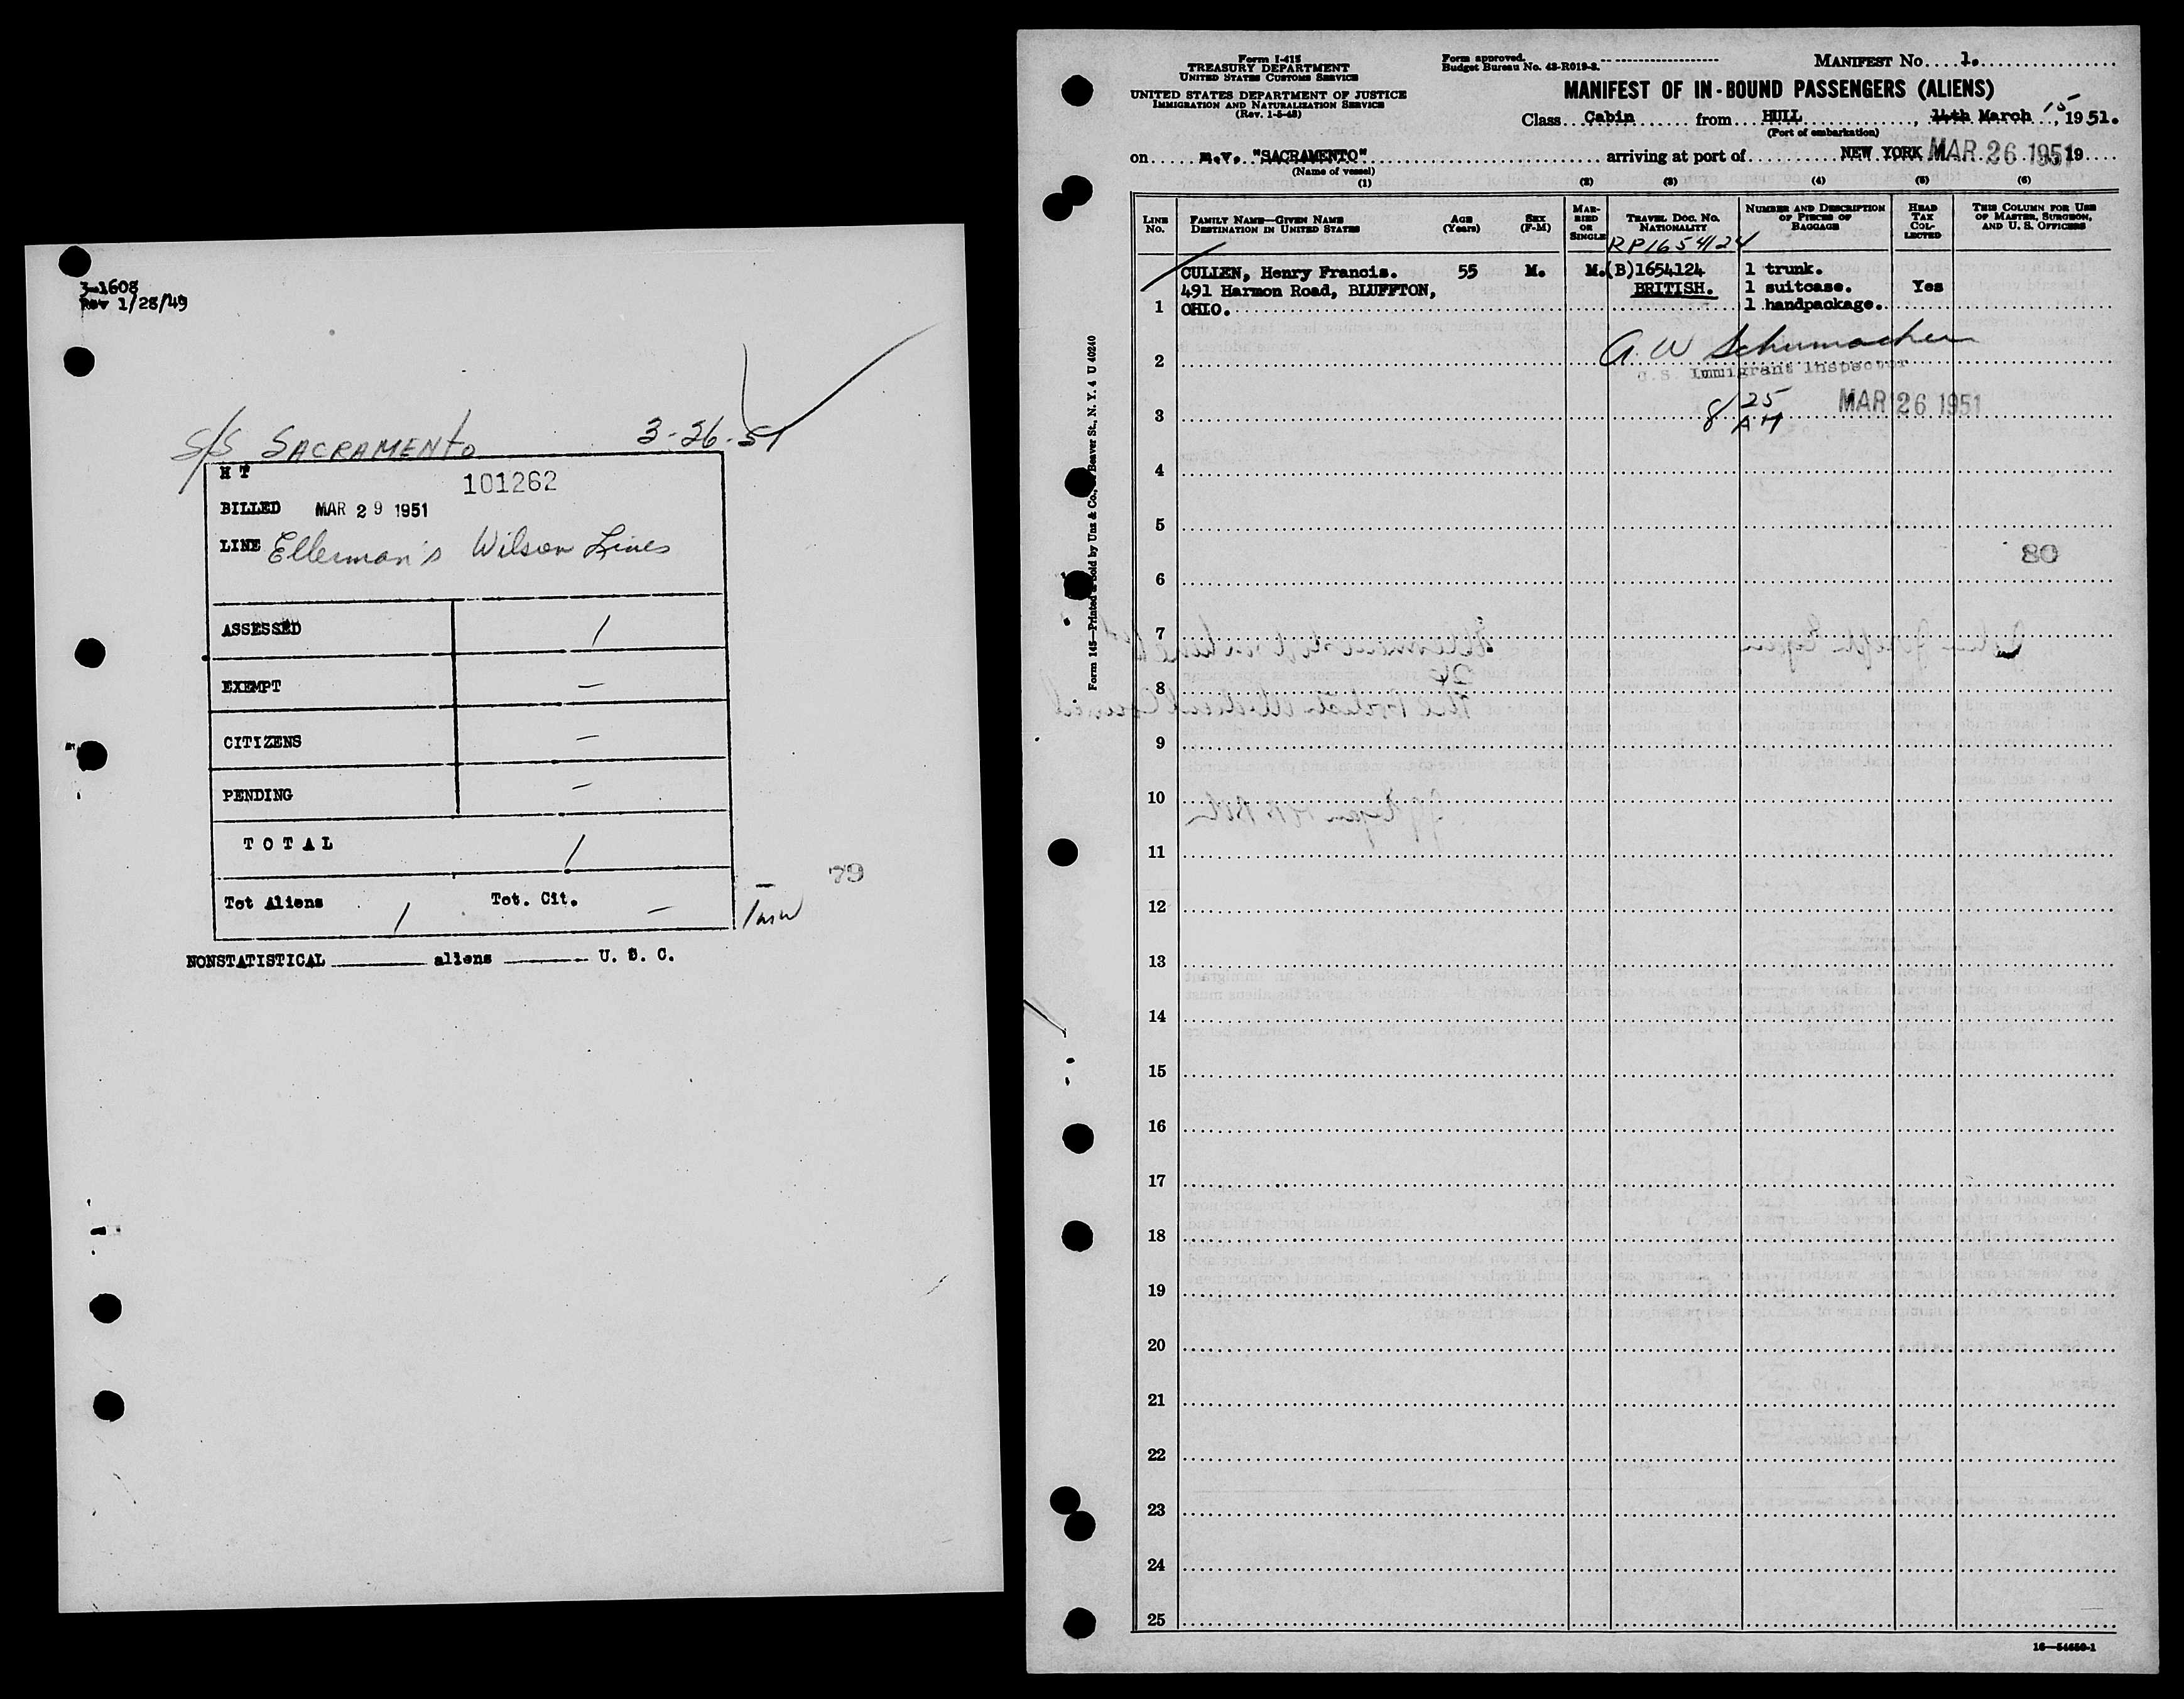 3-1608
Rev 1/28/49
S/S SACRAMENTO 3-26-51
H T 101262
BILLED MAR 29 1951
LINE Ellerman's Wilson Lines
ASSESSED 1
EXEMPT —
CITIZENS —
PENDING —
TOTAL 1
Tot Aliens 1 Tot. Cit. —
79
NONSTATISTICAL aliens U. S. C.
Form I-415
TREASURY DEPARTMENT
UNITED STATES CUSTOMS SERVICE
UNITED STATES DEPARTMENT OF JUSTICE
IMMIGRATION AND NATURALIZATION SERVICE
(Rev. 1-5-48)
Form approved.
Budget Bureau No. 43-R019-2.
MANIFEST No. 1.
MANIFEST OF IN-BOUND PASSENGERS (ALIENS)
Class Cabin from HULL, 14th March 15, 1951.
(Port of embarkation)
on m.v. "SACRAMENTO" arriving at port of NEW YORK MAR 26 1951 19
(Name of vessel)
(1) (2) (3) (4) (5) (6)
LINE No.
FAMILY NAME—GIVEN NAME
DESTINATION IN UNITED STATES
AGE (Years)
SEX (F-M)
MARRIED OR SINGLE
TRAVEL DOC. NO.
NATIONALITY
NUMBER AND DESCRIPTION OF PIECES OF BAGGAGE
HEAD TAX COLLECTED
THIS COLUMN FOR USE OF MASTER, SURGEON, AND U. S. OFFICERS
RP1654124
CULLEN, Henry Francis. 55 M. M. (B)1654124 1 trunk.
491 Harmon Road, BLUFFTON, BRITISH. 1 suitcase. Yes
1 OHIO. 1 handpackage.
A W Schumacher
2
U.S. Immigrant Inspector
8/25 AM MAR 26 1951
3
4
5
80
6
7
8
9
10
11
12
13
14
15
16
17
18
19
20
21
22
23
24
25
16—54650-1